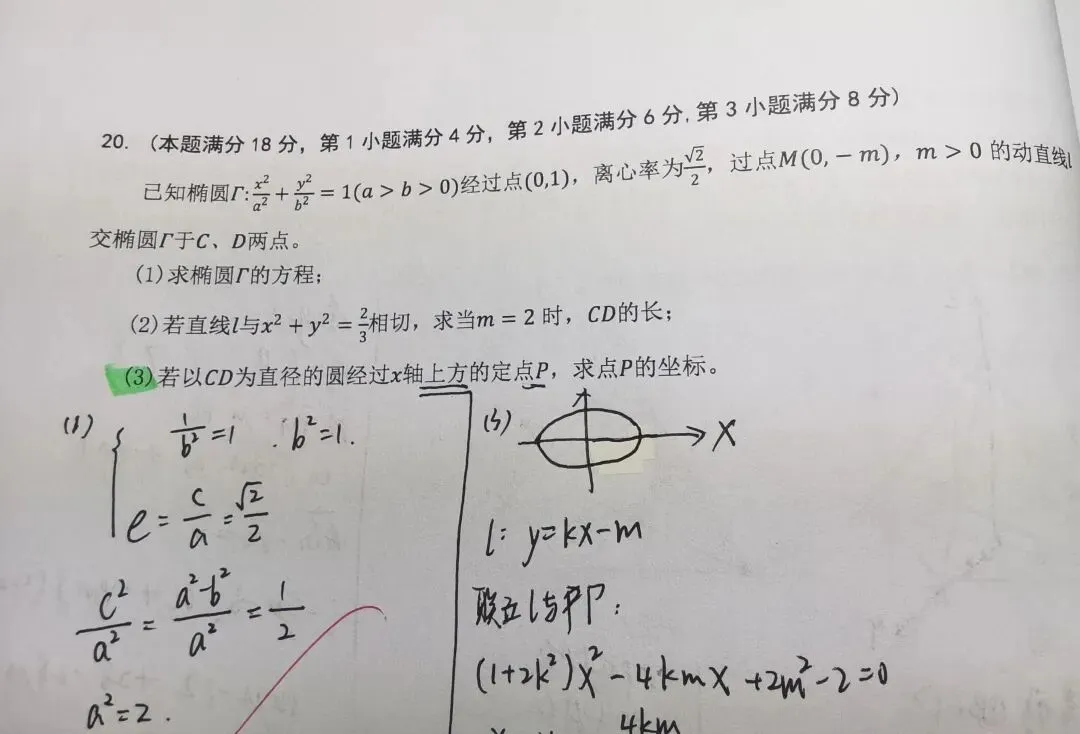 20. （本题满分 18 分，第 1 小题满分 4 分，第 2 小题满分 6 分, 第 3 小题满分 8 分）
已知椭圆Γ: x²/a² + y²/b² = 1(a > b > 0)经过点(0,1)，离心率为√2/2，过点M(0, − m)，m > 0 的动直线l
交椭圆Γ于C、D两点。
(1)求椭圆Γ的方程；
(2)若直线l与x² + y² = 2/3相切，求当m = 2 时，CD的长；
(3)若以CD为直径的圆经过x轴上方的定点P，求点P的坐标。
(1) { 1/b² = 1 . b² = 1.
e = c/a = √2/2
c²/a² = a²-b²/a² = 1/2
a² = 2 .
(3)
X
l: y=kx-m
联立l与Γ:
(1+2k²)x² - 4kmx +2m²-2=0
4km